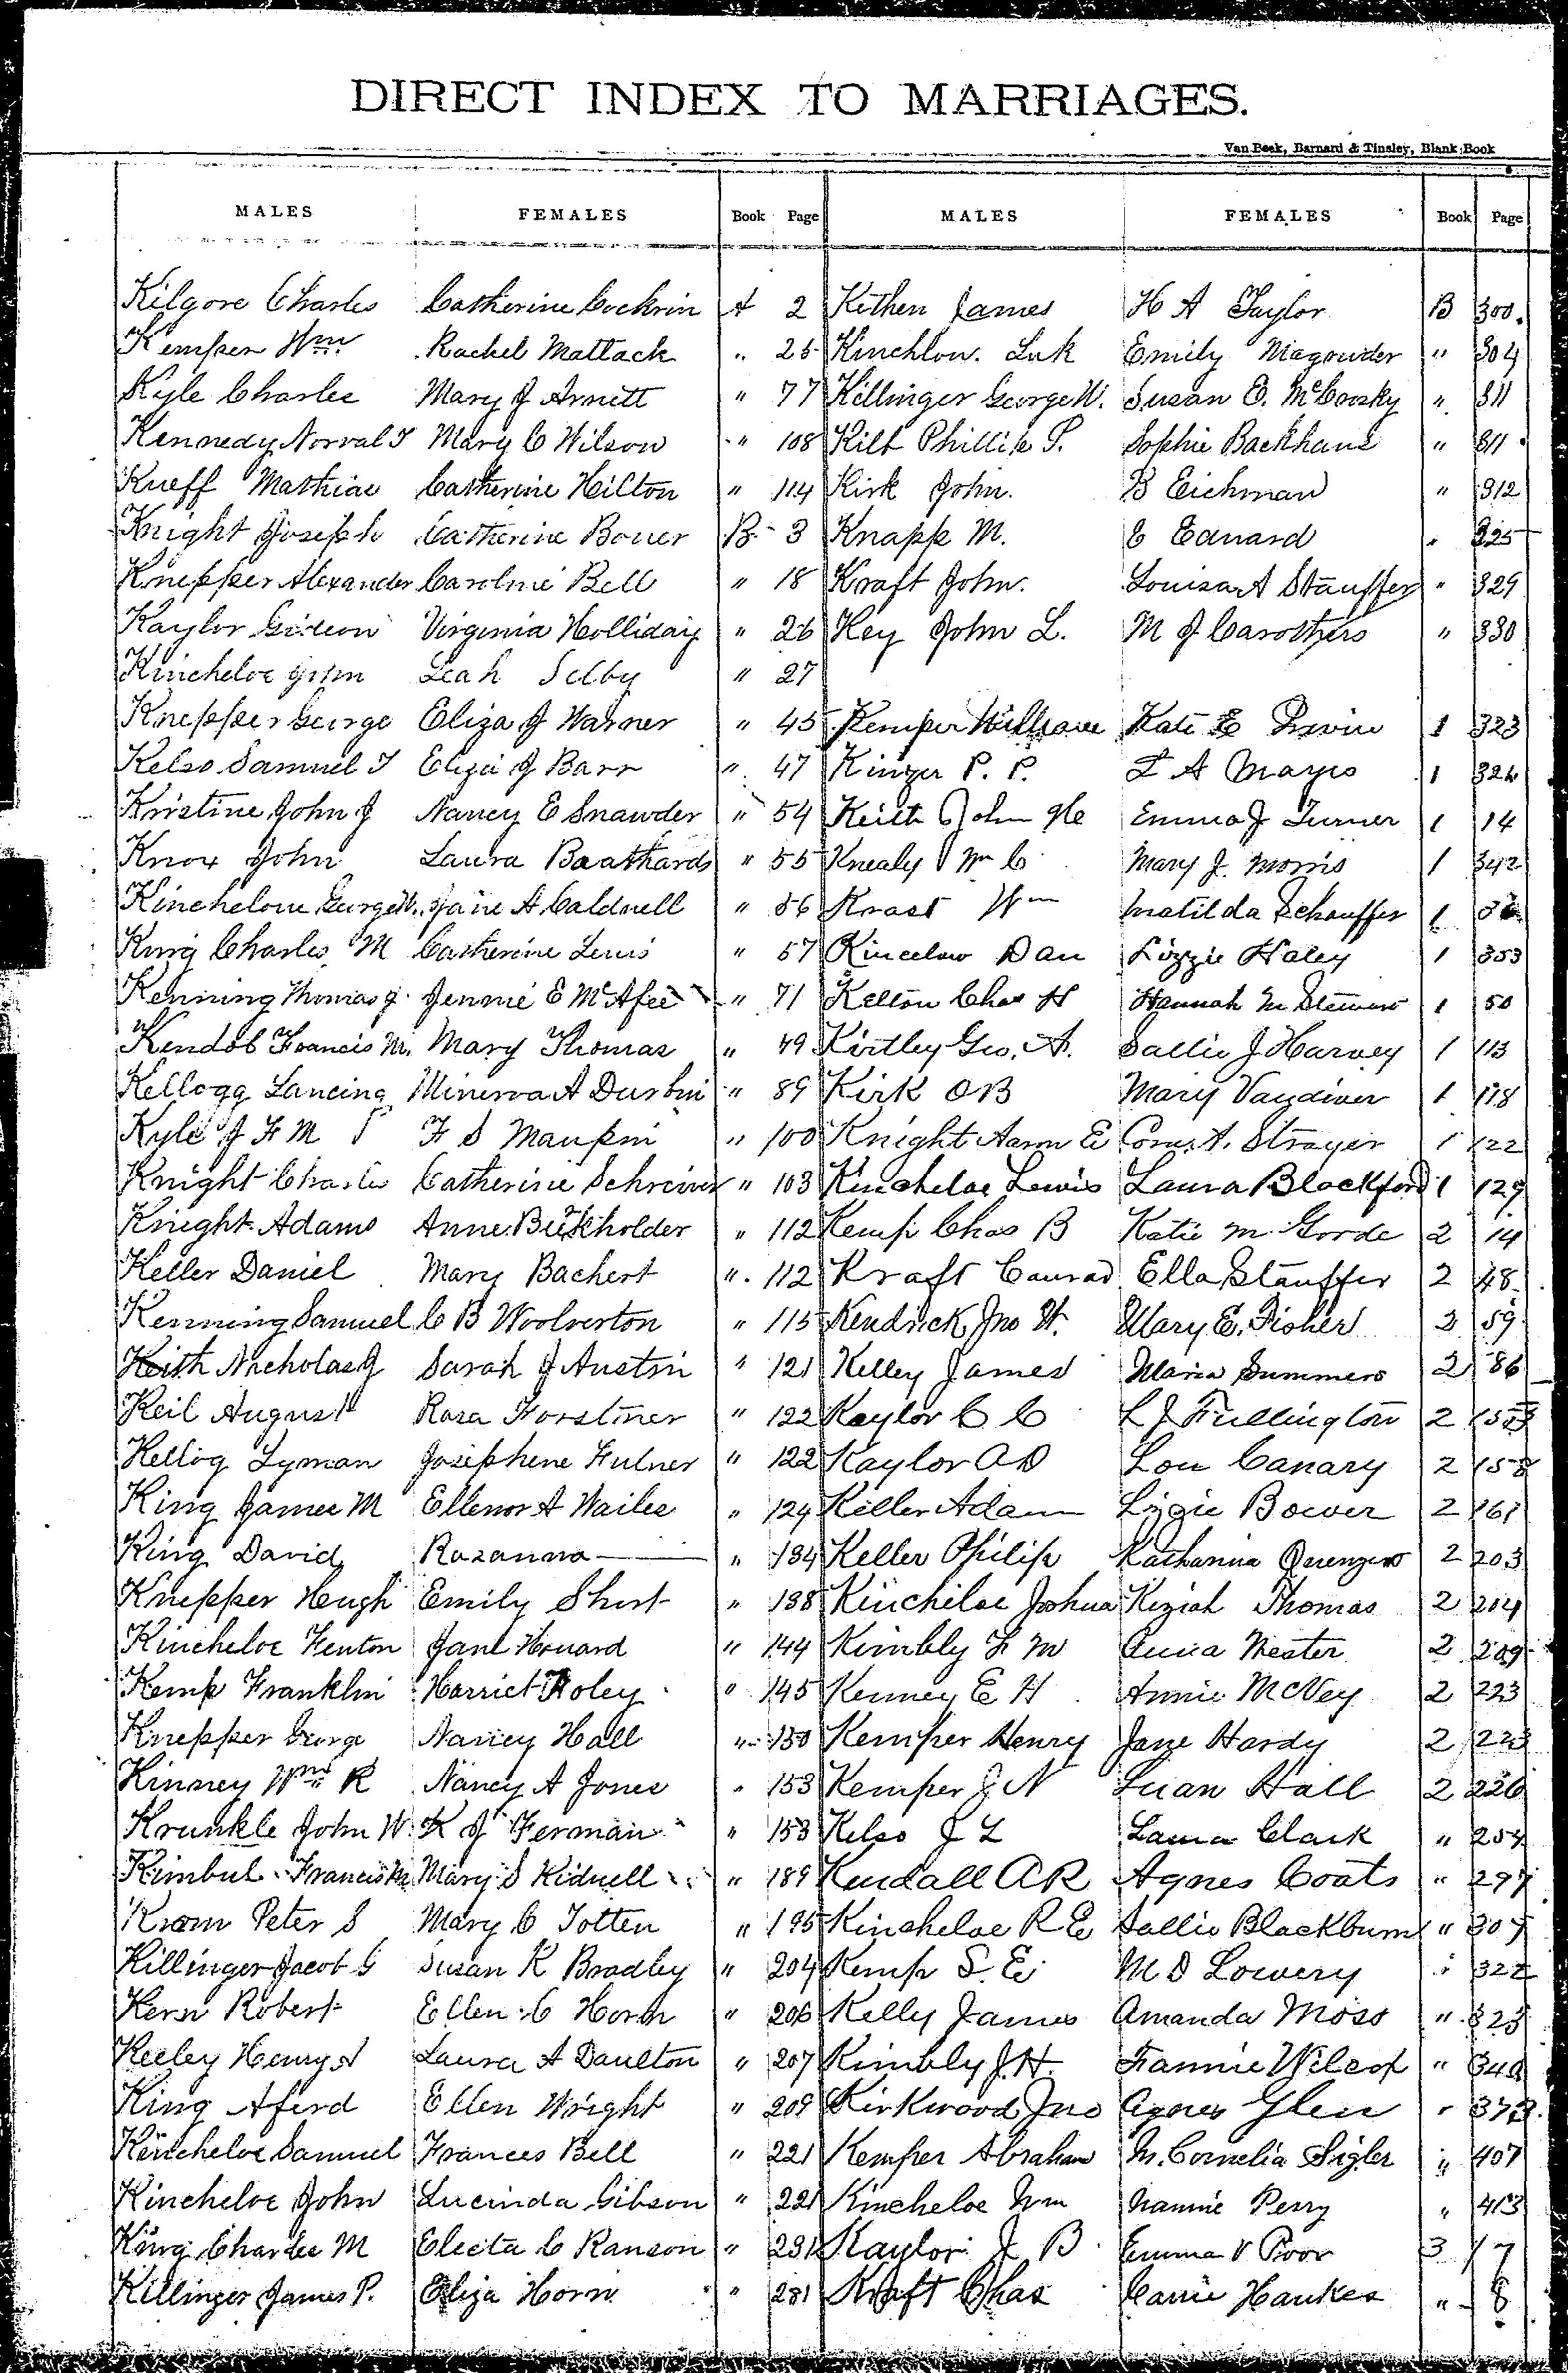 DIRECT INDEX TO MARRIAGES.
Van Beek, Barnard & Tinsley, Blank Book
MALES FEMALES Book Page MALES FEMALES Book Page
Kilgore Charles Catherine Cockrin A 2 Kithen James H A Taylor B 300
Kemper Wm Rachel Mattack " 25 Kinchlow. Luk Emily Magruder " 304
Kyle Charles Mary J Arnett " 77 Killinger George W. Susan E. McCrosky " 311
Kennedy Norval T Mary C Wilson " 108 Kilt Phillip P. Sophie Backhaus " 311
Kueff Mathias Catherine Hilton " 114 Kirk John. B Eichman " 312
Knight Joseph Catherine Bouer B 3 Knapp M. E Edward " 325
Knepper Alexander Caroline Bell " 18 Kraft John. Louisa A Stauffer " 329
Kaylor Gideon Virginia Holliday " 26 Key John L. M J Carothers " 330
Kincheloe John Leah Selby " 27
Knepper George Eliza J Warner " 45 Kemper William Kate E Irvin 1 323
Kelso Samuel T Eliza J Barr " 47 Kinzer P. P. L A Mayes 1 326
Kristine John J Nancy E Snawder " 54 Keith John Emma J Turner 1 14
Knox John Laura Baathards " 55 Knealy Wm C Mary J. Morris 1 342
Kinchelow George W. Jane A Caldwell " 56 Krast Wm Matilda Schauffer 1
King Charles M Catherine Lewis " 57 Kincelow Dan Lizzie Haley 1 353
Kenning Thomas J. Jennie E McAfee " 71 Kelton Chas H Hannah M 1 50
Kendob Francis M. Mary Thomas " 79 Kirtley Geo. A. Sallie J Harvey 1 113
Kellogg Lancing Minerva A Durbin " 89 Kirk O B Mary Vandiver 1 118
Kyle J F M F S Maupin " 100 Knight Aaron E Cora A. Strayer 1 122
Knight Charles Catherine Schreiver " 103 Kincheloe Lewis Laura Blackford 1 129
Knight Adams Anne Burkholder " 112 Kemp Chas B Katie M Gorde 2 14
Keller Daniel Mary Bachert " 112 Kraft Conrad Ella Stauffer 2 48
Kenning Samuel C B Woolverton " 115 Kendrick Jno W. Mary E. Fisher 2 59
Keith Nicholas J Sarah J Austin " 121 Kelley James Maria Summers 2 86
Keil August Rosa Forstner " 122 Kaylor C C L J Fullington 2 153
Kellog Lyman Josephene Fulner " 122 Kaylor A D Lou Canary 2 158
King James M Ellenor A Wailes " 124 Keller Adam Lizzie Bower 2 161
King David Rozanna " 134 Keller Philip Katharina 2 203
Knepper Hugh Emily Short " 138 Kincheloe Joshua Keziah Thomas 2 204
Kincheloe Fenton Jane Howard " 144 Kimbly F M Anna Nester 2 209
Kemp Franklin Harriet Foley " 145 Kenney E H Annie McVey 2 223
Knepper George Nancy Hall " 150 Kemper Henry Jane Hardy 2 223
Kinney Wm R Nancy A Jones " 153 Kemper J N Luan Hall 2 226
Krunkle John W. K J Ferman " 153 Kelso J L Laura Clark " 254
Kimbul Francis M. Mary S Kidwell " 189 Kendall A R Agnes Coats " 297
Krom Peter S Mary C Totten " 195 Kincheloe R E Sallie Blackburn " 307
Killinger Jacob G Susan K Bradley " 204 Kemp S. E. M D Lowery " 322
Kern Robert Ellen C Horn " 206 Kelly James Amanda Moss " 323
Keeley Henry A Laura A Daulton " 207 Kimbly J. H. Fannie Wilcox " 340
King Aferd Ellen Wright " 209 Kirkwood Jno Agnes Glen " 373
Kincheloe Samuel Frances Bell " 221 Kemper Abraham M. Cornelia Sigler " 407
Kincheloe John Lucinda Gibson " 221 Kincheloe Wm Nannie Perry " 413
King Charles M Electa C Ranson " 231 Kaylor J B Emma V Poor 3 7
Killinger James P. Eliza Horn " 231 Kraft Chas Carrie Hawkes " 8